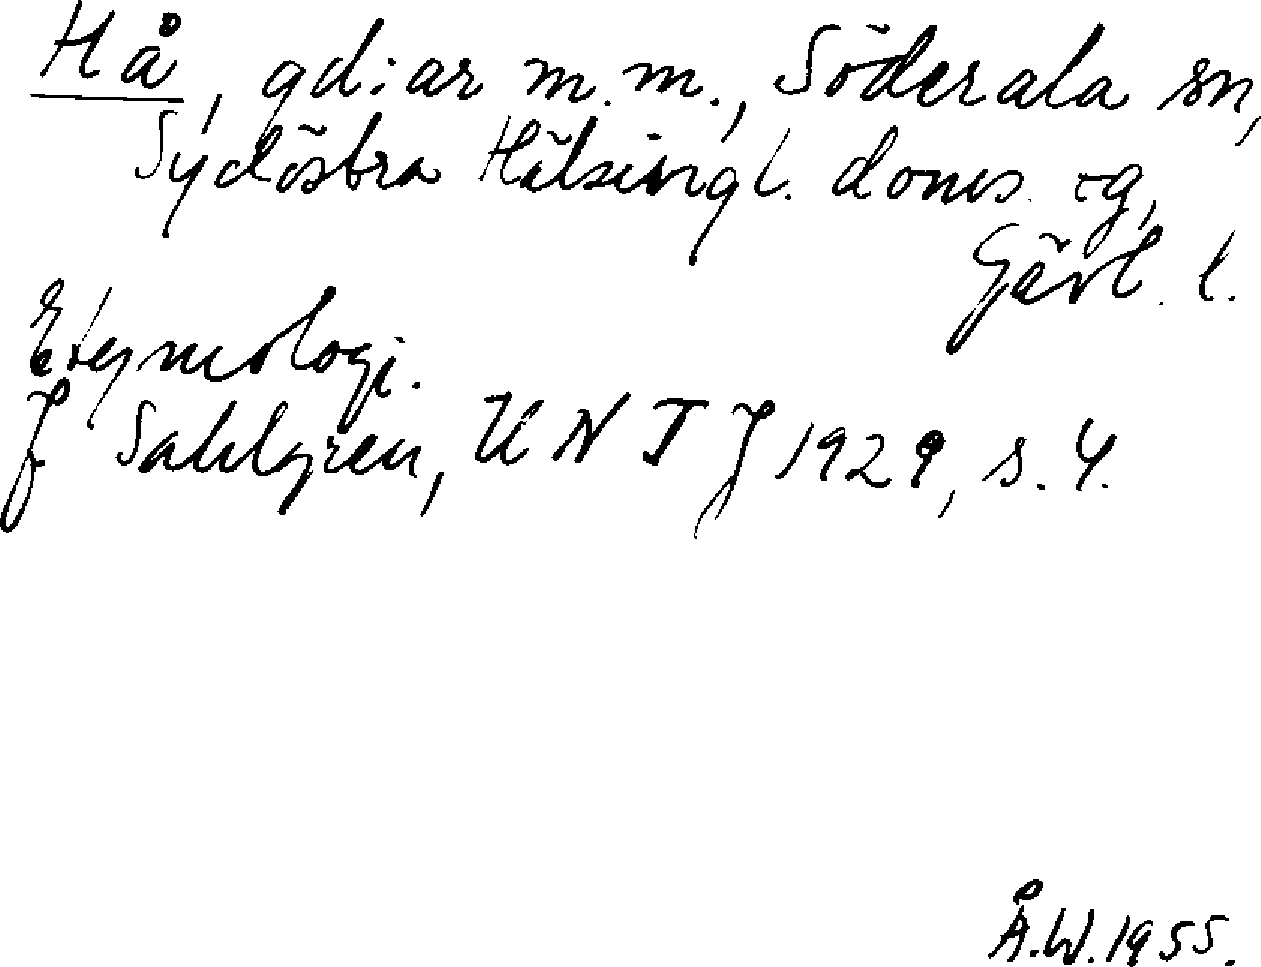 Hå, gd:ar m.m., Söderala sn,
Sydöstra Hälsingl. doms. -g,
Gävl. l.
Etymologi.
J Sahlgren, UNTJ 1929, s. 4.
Å.W. 1955.